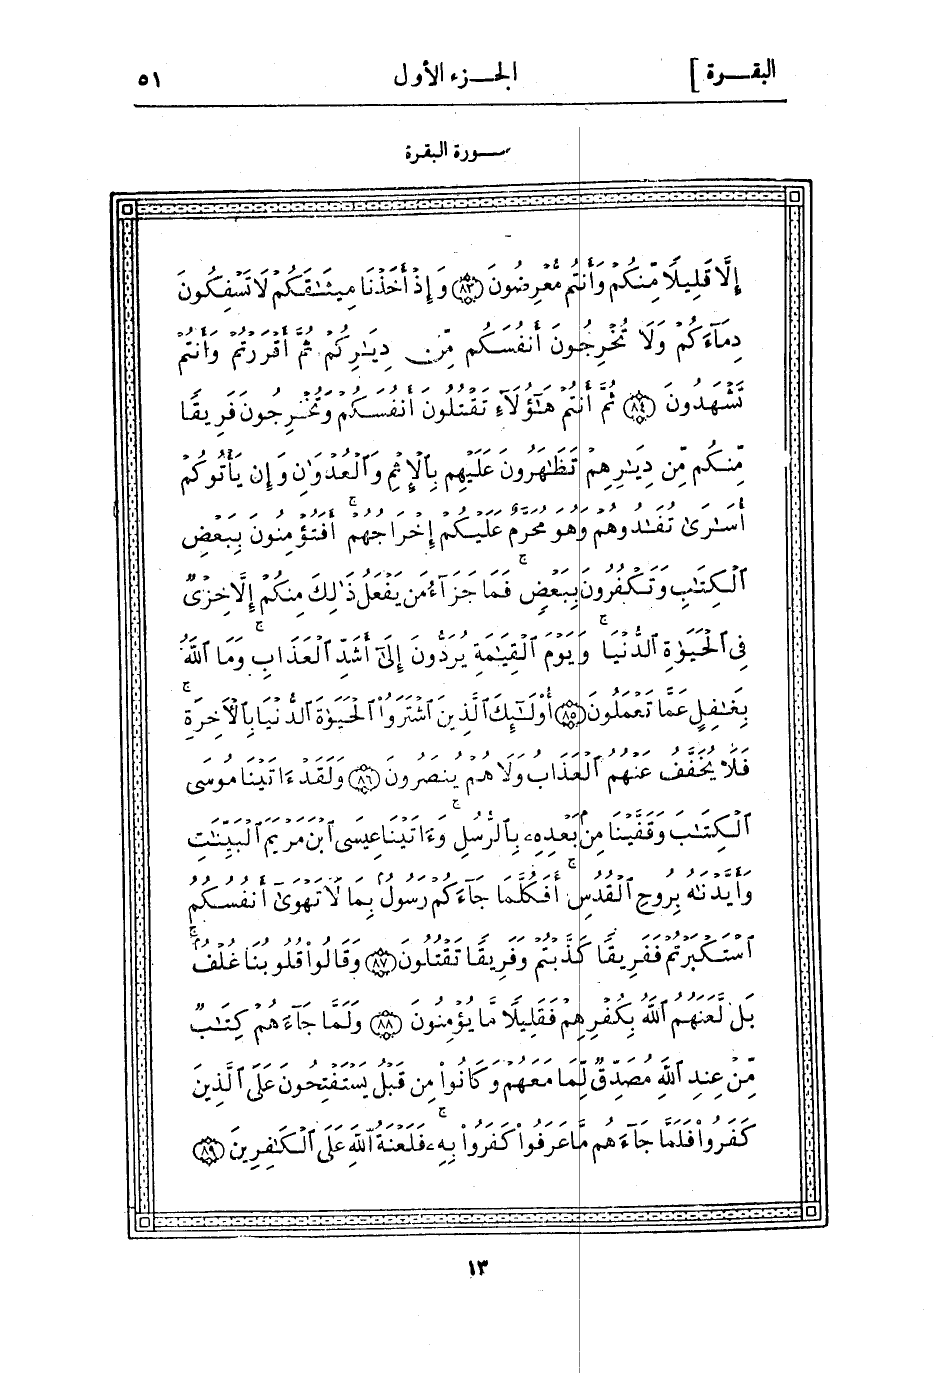 البقرة ]
الجزء الأول
٥١
سورة البقرة
إِلَّا قَلِيلًا مِّنكُمْ وَأَنتُم مُّعْرِضُونَ ٨٣ وَإِذْ أَخَذْنَا مِيثَٰقَكُمْ لَا تَسْفِكُونَ
دِمَآءَكُمْ وَلَا تُخْرِجُونَ أَنفُسَكُم مِّن دِيَٰرِكُمْ ثُمَّ أَقْرَرْتُمْ وَأَنتُمْ
تَشْهَدُونَ ٨٤ ثُمَّ أَنتُمْ هَٰٓؤُلَآءِ تَقْتُلُونَ أَنفُسَكُمْ وَتُخْرِجُونَ فَرِيقًا
مِّنكُم مِّن دِيَٰرِهِمْ تَظَٰهَرُونَ عَلَيْهِم بِٱلْإِثْمِ وَٱلْعُدْوَٰنِ وَإِن يَأْتُوكُمْ
أُسَٰرَىٰ تُفَٰدُوهُمْ وَهُوَ مُحَرَّمٌ عَلَيْكُمْ إِخْرَاجُهُمْ ۚ أَفَتُؤْمِنُونَ بِبَعْضِ
ٱلْكِتَٰبِ وَتَكْفُرُونَ بِبَعْضٍ ۚ فَمَا جَزَآءُ مَن يَفْعَلُ ذَٰلِكَ مِنكُمْ إِلَّا خِزْىٌ
فِى ٱلْحَيَوٰةِ ٱلدُّنْيَا ۖ وَيَوْمَ ٱلْقِيَٰمَةِ يُرَدُّونَ إِلَىٰٓ أَشَدِّ ٱلْعَذَابِ ۗ وَمَا ٱللَّهُ
بِغَٰفِلٍ عَمَّا تَعْمَلُونَ ٨٥ أُو۟لَٰٓئِكَ ٱلَّذِينَ ٱشْتَرَوُا۟ ٱلْحَيَوٰةَ ٱلدُّنْيَا بِٱلْءَاخِرَةِ ۖ
فَلَا يُخَفَّفُ عَنْهُمُ ٱلْعَذَابُ وَلَا هُمْ يُنصَرُونَ ٨٦ وَلَقَدْ ءَاتَيْنَا مُوسَى
ٱلْكِتَٰبَ وَقَفَّيْنَا مِنۢ بَعْدِهِۦ بِٱلرُّسُلِ ۖ وَءَاتَيْنَا عِيسَى ٱبْنَ مَرْيَمَ ٱلْبَيِّنَٰتِ
وَأَيَّدْنَٰهُ بِرُوحِ ٱلْقُدُسِ ۗ أَفَكُلَّمَا جَآءَكُمْ رَسُولٌۢ بِمَا لَا تَهْوَىٰٓ أَنفُسُكُمُ
ٱسْتَكْبَرْتُمْ فَفَرِيقًا كَذَّبْتُمْ وَفَرِيقًا تَقْتُلُونَ ٨٧ وَقَالُوا۟ قُلُوبُنَا غُلْفٌۢ ۚ
بَل لَّعَنَهُمُ ٱللَّهُ بِكُفْرِهِمْ فَقَلِيلًا مَّا يُؤْمِنُونَ ٨٨ وَلَمَّا جَآءَهُمْ كِتَٰبٌ
مِّنْ عِندِ ٱللَّهِ مُصَدِّقٌ لِّمَا مَعَهُمْ وَكَانُوا۟ مِن قَبْلُ يَسْتَفْتِحُونَ عَلَى ٱلَّذِينَ
كَفَرُوا۟ فَلَمَّا جَآءَهُم مَّا عَرَفُوا۟ كَفَرُوا۟ بِهِۦ ۚ فَلَعْنَةُ ٱللَّهِ عَلَى ٱلْكَٰفِرِينَ ٨٩
١٣